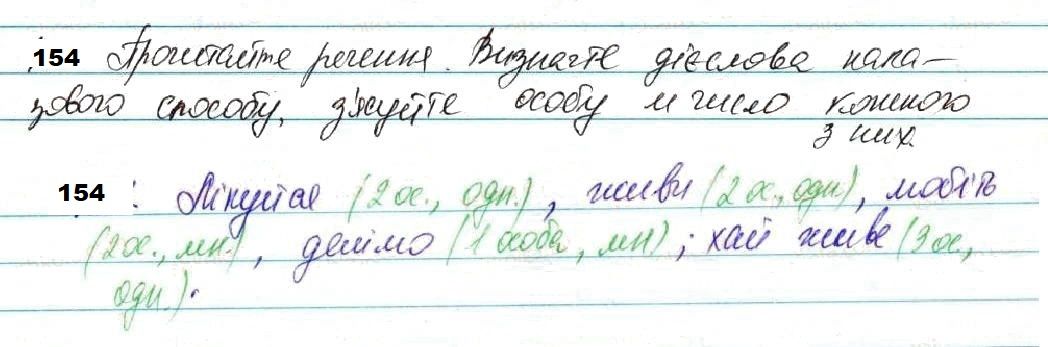 154 Прочитайте речення. Визначте дієслова нака-
зового способу, з'ясуйте особу й число кожного
з них
154 : Лінуйся (2 ос., одн.), живи (2 ос., одн), любіть
(2 ос., мн.), делімо (1 особа, мн); хай живе (3 ос.,
одн.).